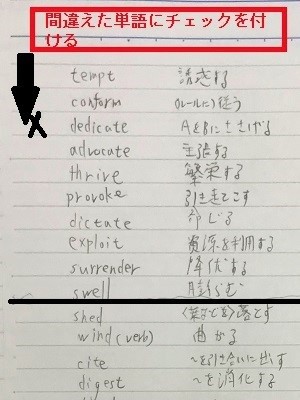 間違えた単語にチェックを付
ける
tempt 誘惑する
conform (ルールに)従う
dedicate AをBにささげる
advocate 主張する
thrive 繁栄する
provoke 引き起こす
dictate 命じる
exploit 資源を利用する
surrender 降伏する
swell 膨らむ
shed 落とす
wind (verb) 曲がる
cite 〜を引き合いに出す
digest 〜を消化する